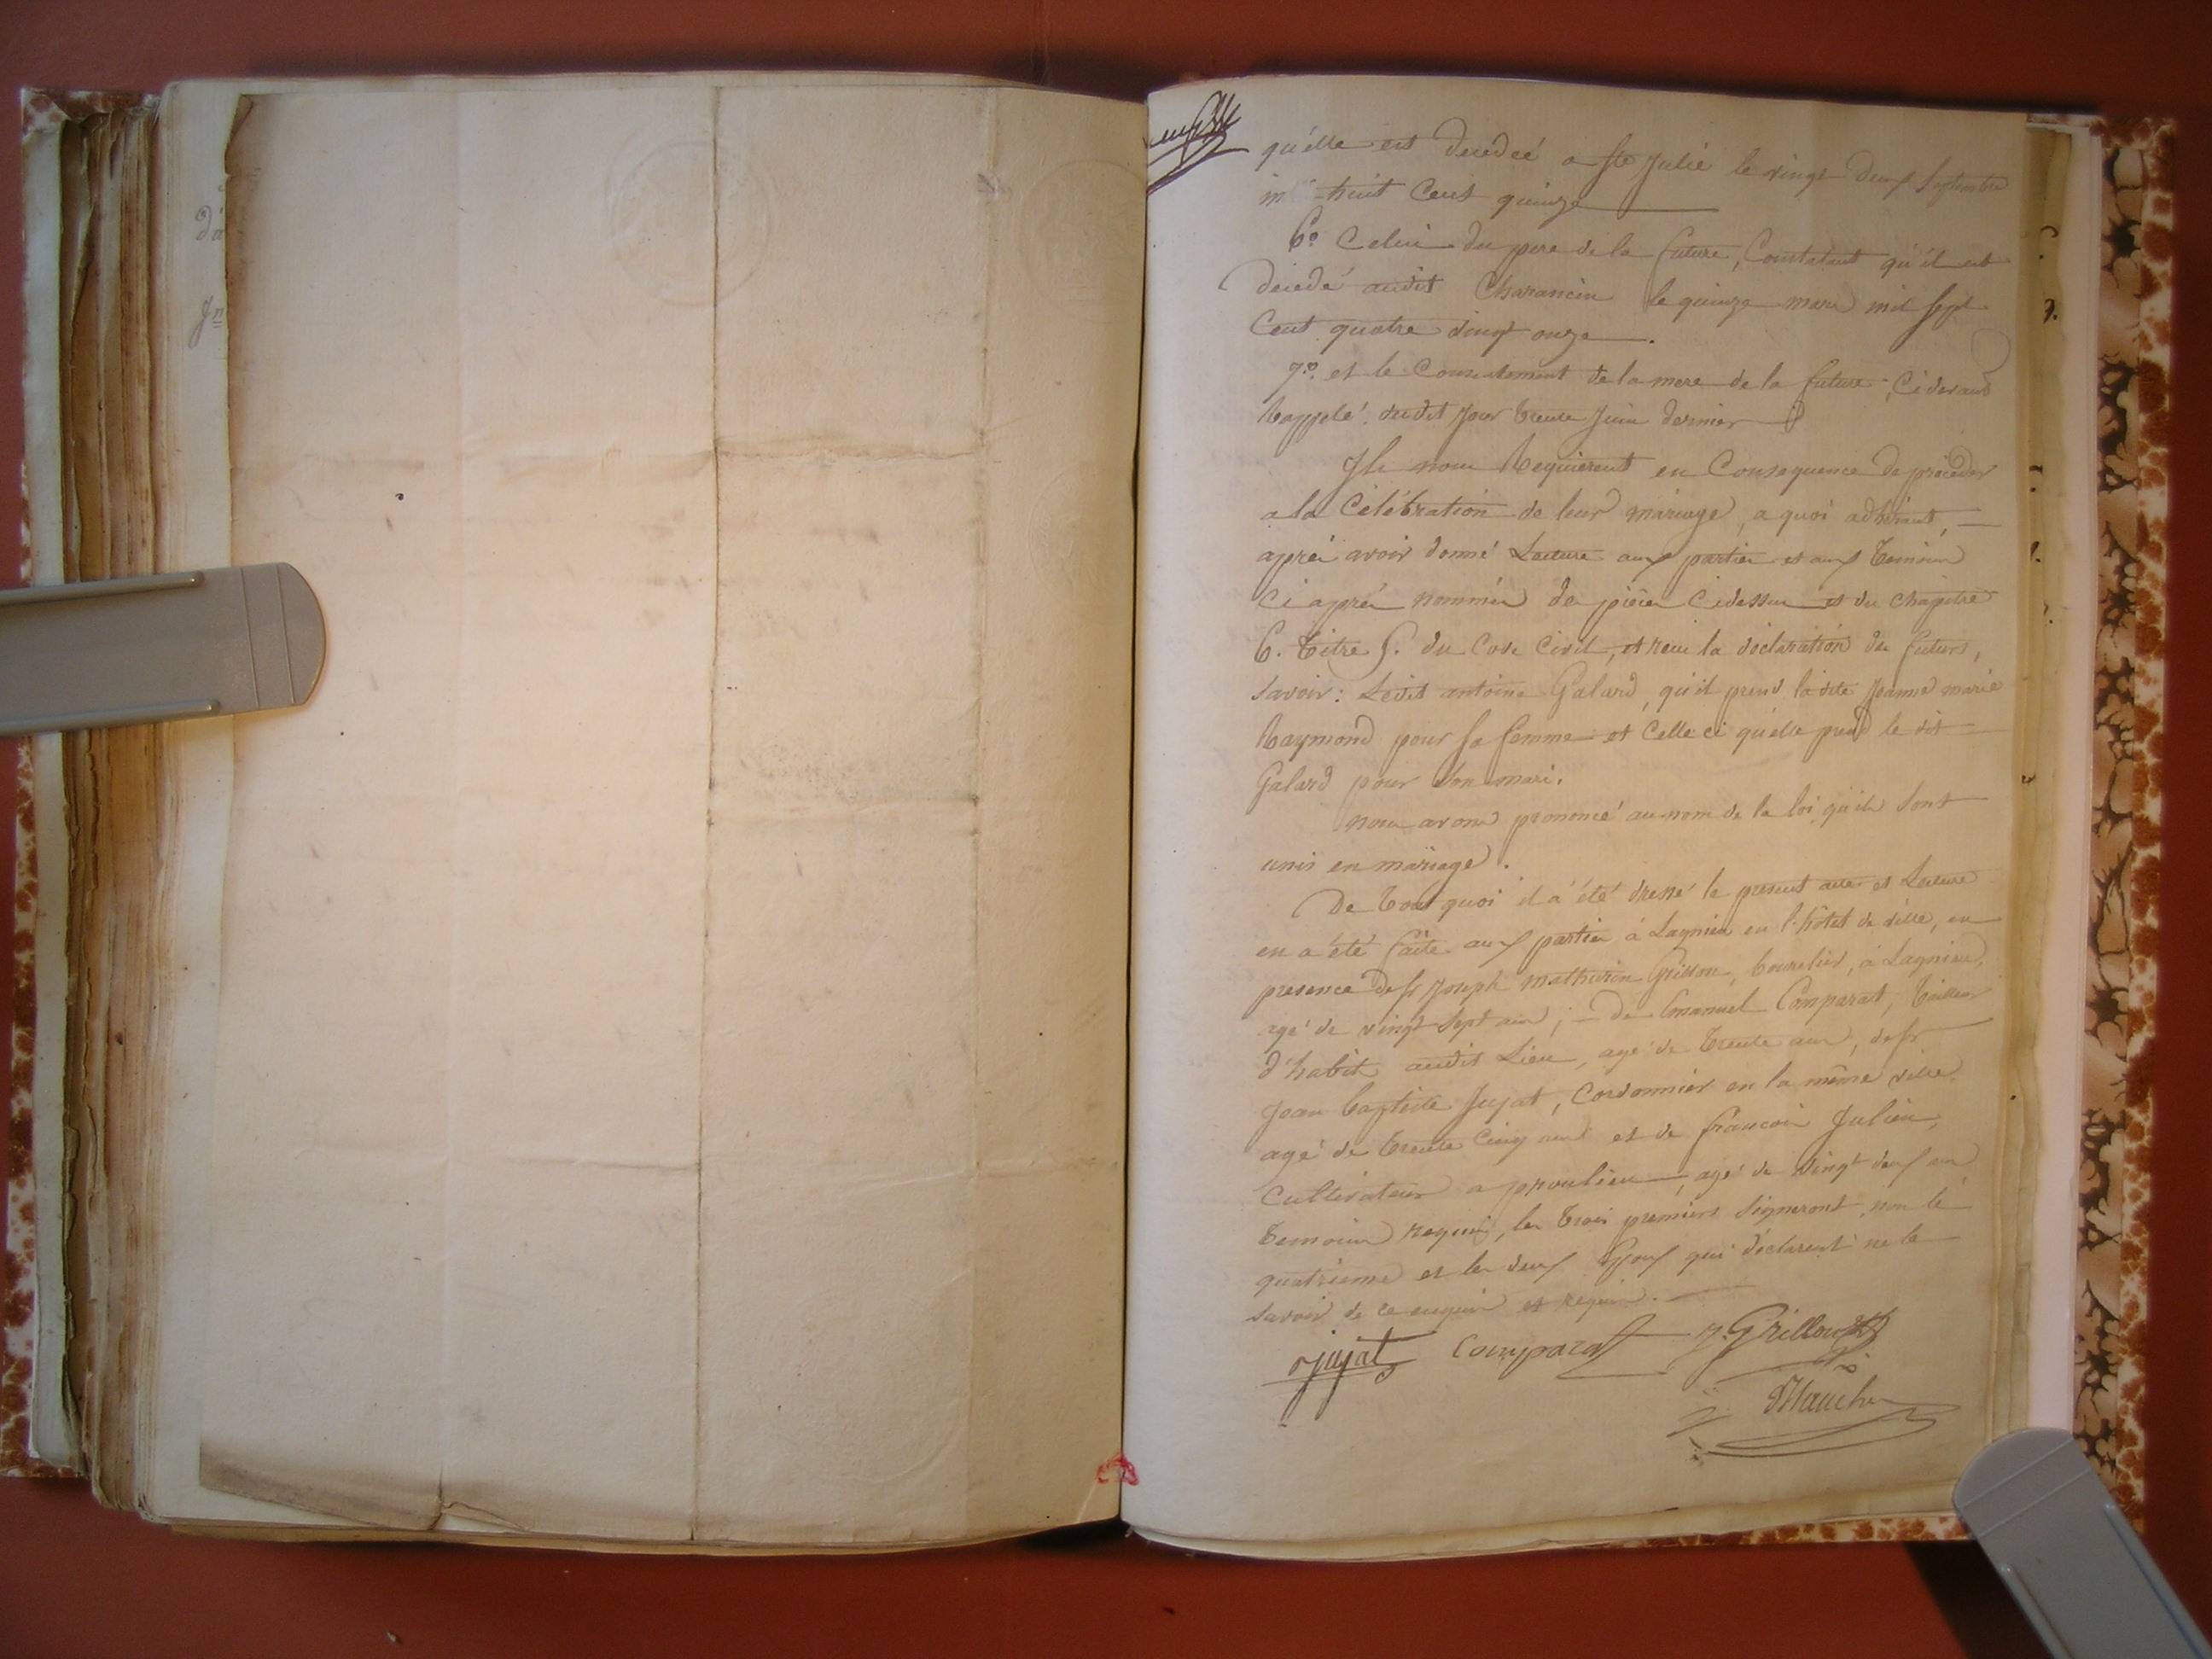 dá
Jn
qu'élle est decedeé a Ste Julie le vingt deux Septembre
mil huit Cent quinze
6.º Celui du pere de la future, Constatant qu'il est
decedé audit Charancin le quinze mars mil sept
Cent quatre vingt onze.
7.º et le Consentement de la mere de la future, Cidevant
Rappelé, dudit jour trente Juin dernier
Ils nous Requierent en Consequence de proceder
a la Célébration de leur mariage, a quoi adhérant,
aprés avoir donné Lecture aux parties et aux temoins
Ci aprés nommés des piéces Cidessus et du chapitre
6. titre 5. du Code Civil, et reçu la déclaration des futurs,
Savoir: Ledit antoine Galard, qu'il prend la dite Jeanne marie
Raymond pour sa femme et Celle ci qu'élle prend le dit
Galard pour son mari.
nous avons prononcé au nom de la loi qu'ils sont
unis en mariage.
De tout quoi il a été dressé le present acte et Lecture
en a été faite aux parties à Lagnieu en l'hôtel de ville, en
presence de sr Joseph mathurin Grillon, bourelier, à Lagnieu,
agé de vingt sept ans; de Emanuel Comparat, tailleur
d'habits audit Lieu, agé de trente ans, de sr
Jean baptiste Jujat, Cordonnier en la même ville
agé de trente Cinq ans et de francois Julien,
Cultivateur a proulieu, agé de vingt deux ans
temoins requis, les trois premiers signeront, non le
quatrieme et les deux Epoux qui déclarent ne le
savoir de ce enquis et requis.
Jujat Comparat J. Grillon